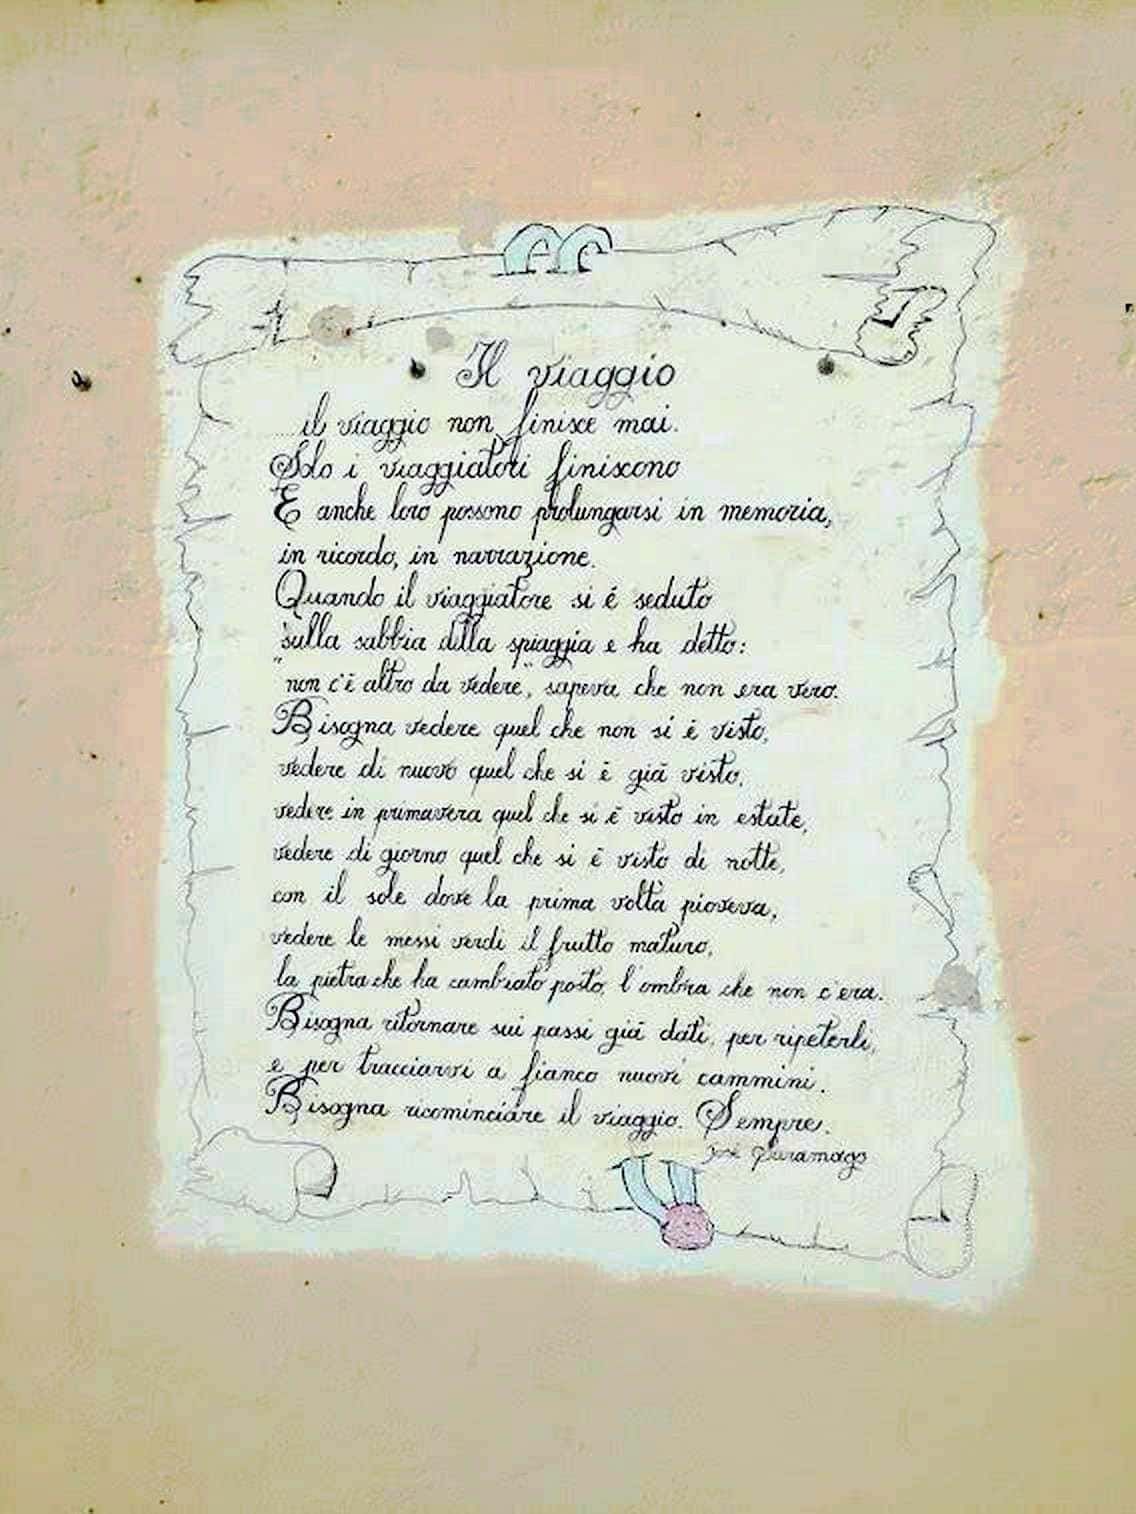 Il viaggio
il viaggio non finisce mai.
Solo i viaggiatori finiscono
E anche loro possono prolungarsi in memoria,
in ricordo, in narrazione.
Quando il viaggiatore si é seduto
sulla sabbia della spiaggia e ha detto:
"non c'é altro da vedere", sapeva che non era vero.
Bisogna vedere quel che non si é visto,
vedere di nuovo quel che si é giá visto,
vedere in primavera quel che si é visto in estate,
vedere di giorno quel che si é visto di notte,
con il sole dove la prima volta pioveva,
vedere le messi verdi il frutto maturo,
la pietra che ha cambiato posto, l'ombra che non c'era.
Bisogna ritornare sui passi giá dati, per ripeterli,
e per tracciarvi a fianco nuovi cammini.
Bisogna ricominciare il viaggio. Sempre.
José Saramago